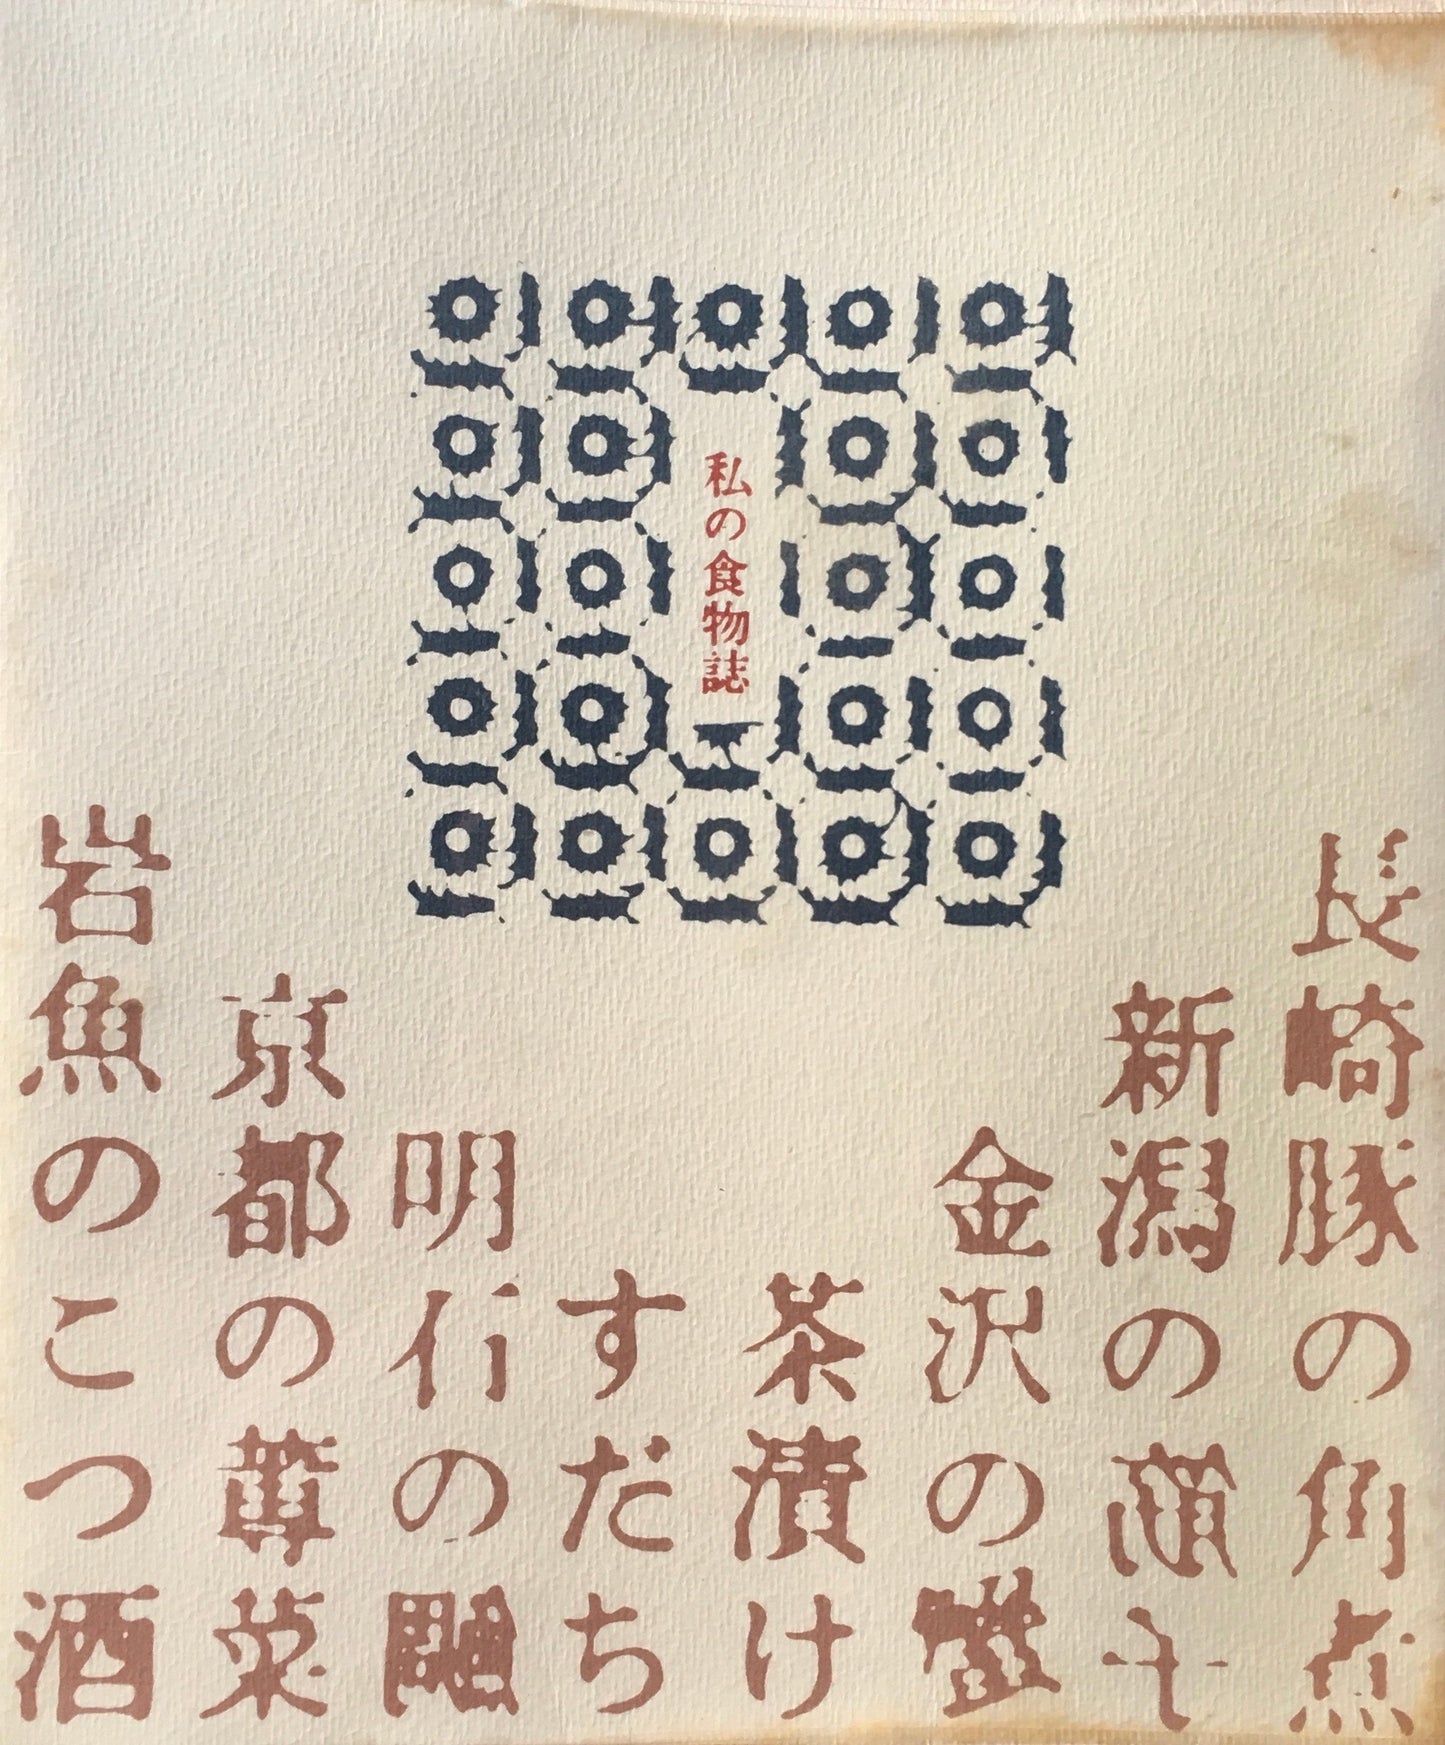 私の食物誌
長崎豚の角煮
新潟の
金沢の
茶漬け
すだち
明石の
京都の蓴菜
岩魚のこつ酒